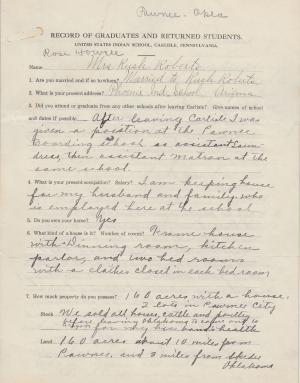 Pawnee - Okla
RECORD OF GRADUATES AND RETURNED STUDENTS.
UNITED STATES INDIAN SCHOOL, CARLISLE, PENNSYLVANIA.
Rose Howell
Name Mrs Rush Roberts
1. Are you married and if so to whom? Married to Rush Roberts
2. What is your present address? Phoenix Ind. School Arizona
3. Did you attend or graduate from any other schools after leaving Carlisle? Give names of school
and dates if possible. After leaving Carlisle I was
given a position at the Pawnee
Boarding school as assistant Seam-
dress, then assistant matron at the
same school.
4. What is your present occupation? Salary? I am keeping house
for my husband and family, who
is employed here at the school
5. Do you own your home? Yes
6. What kind of a house is it? Number of rooms? Frame house
with Dinning room, kitchen
parlor, and two bed rooms
with a clothes closed in each bed room
7. How much property do you possess? 160 acres with a house,
2 lots in Pawnee City
Stock We sold all horse, cattle and poultry
before leaving Oklahoma to come
for my husbands health
Land 160 acres about 10 miles from
Pawnee, and 3 miles from
Oklahoma